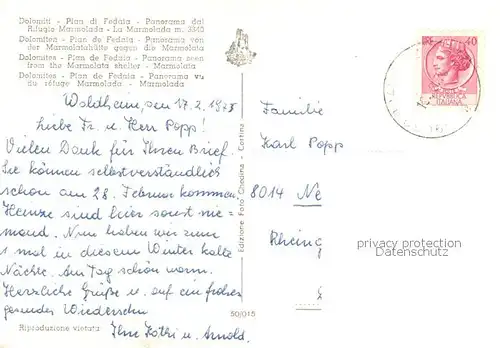 Dolomiti - Plan di Fedaia - Panorama dal
Rifugio Marmolada - La Marmolada m. 3340
Dolomiten - Plan de Fedaia - Panorama von
der Marmolatahütte gegen die Marmolata
Dolomites - Plan de Fedaia - Panorama seen
from the Marmolata shelter - Marmolata
Dolomites - Plan de Fedaia - Panorama vu
du réfuge Marmolada - Marmolada
40
REPUBBLICA
ITALIANA
17.2.1975
Liebe Fr. u. Herr Popp!
Vielen Dank für Ihren Brief.
Sie können selbstverständlich
schon am 28. Februar kommen,
sind hier sonst nie=
mand. Nun haben wir zum
1 mal in diesem Winter kalte
Nächte. Am Tag schön warm.
Herzliche Grüße u. auf ein frohes
gesundes Wiedersehn
Ihre Käthi u. Arnold.
Familie
Karl Popp
8014 Ne
Rheing
privacy protection
Datenschutz
Edizione Foto Ghedina - Cortina
50/015
Riproduzione vietata